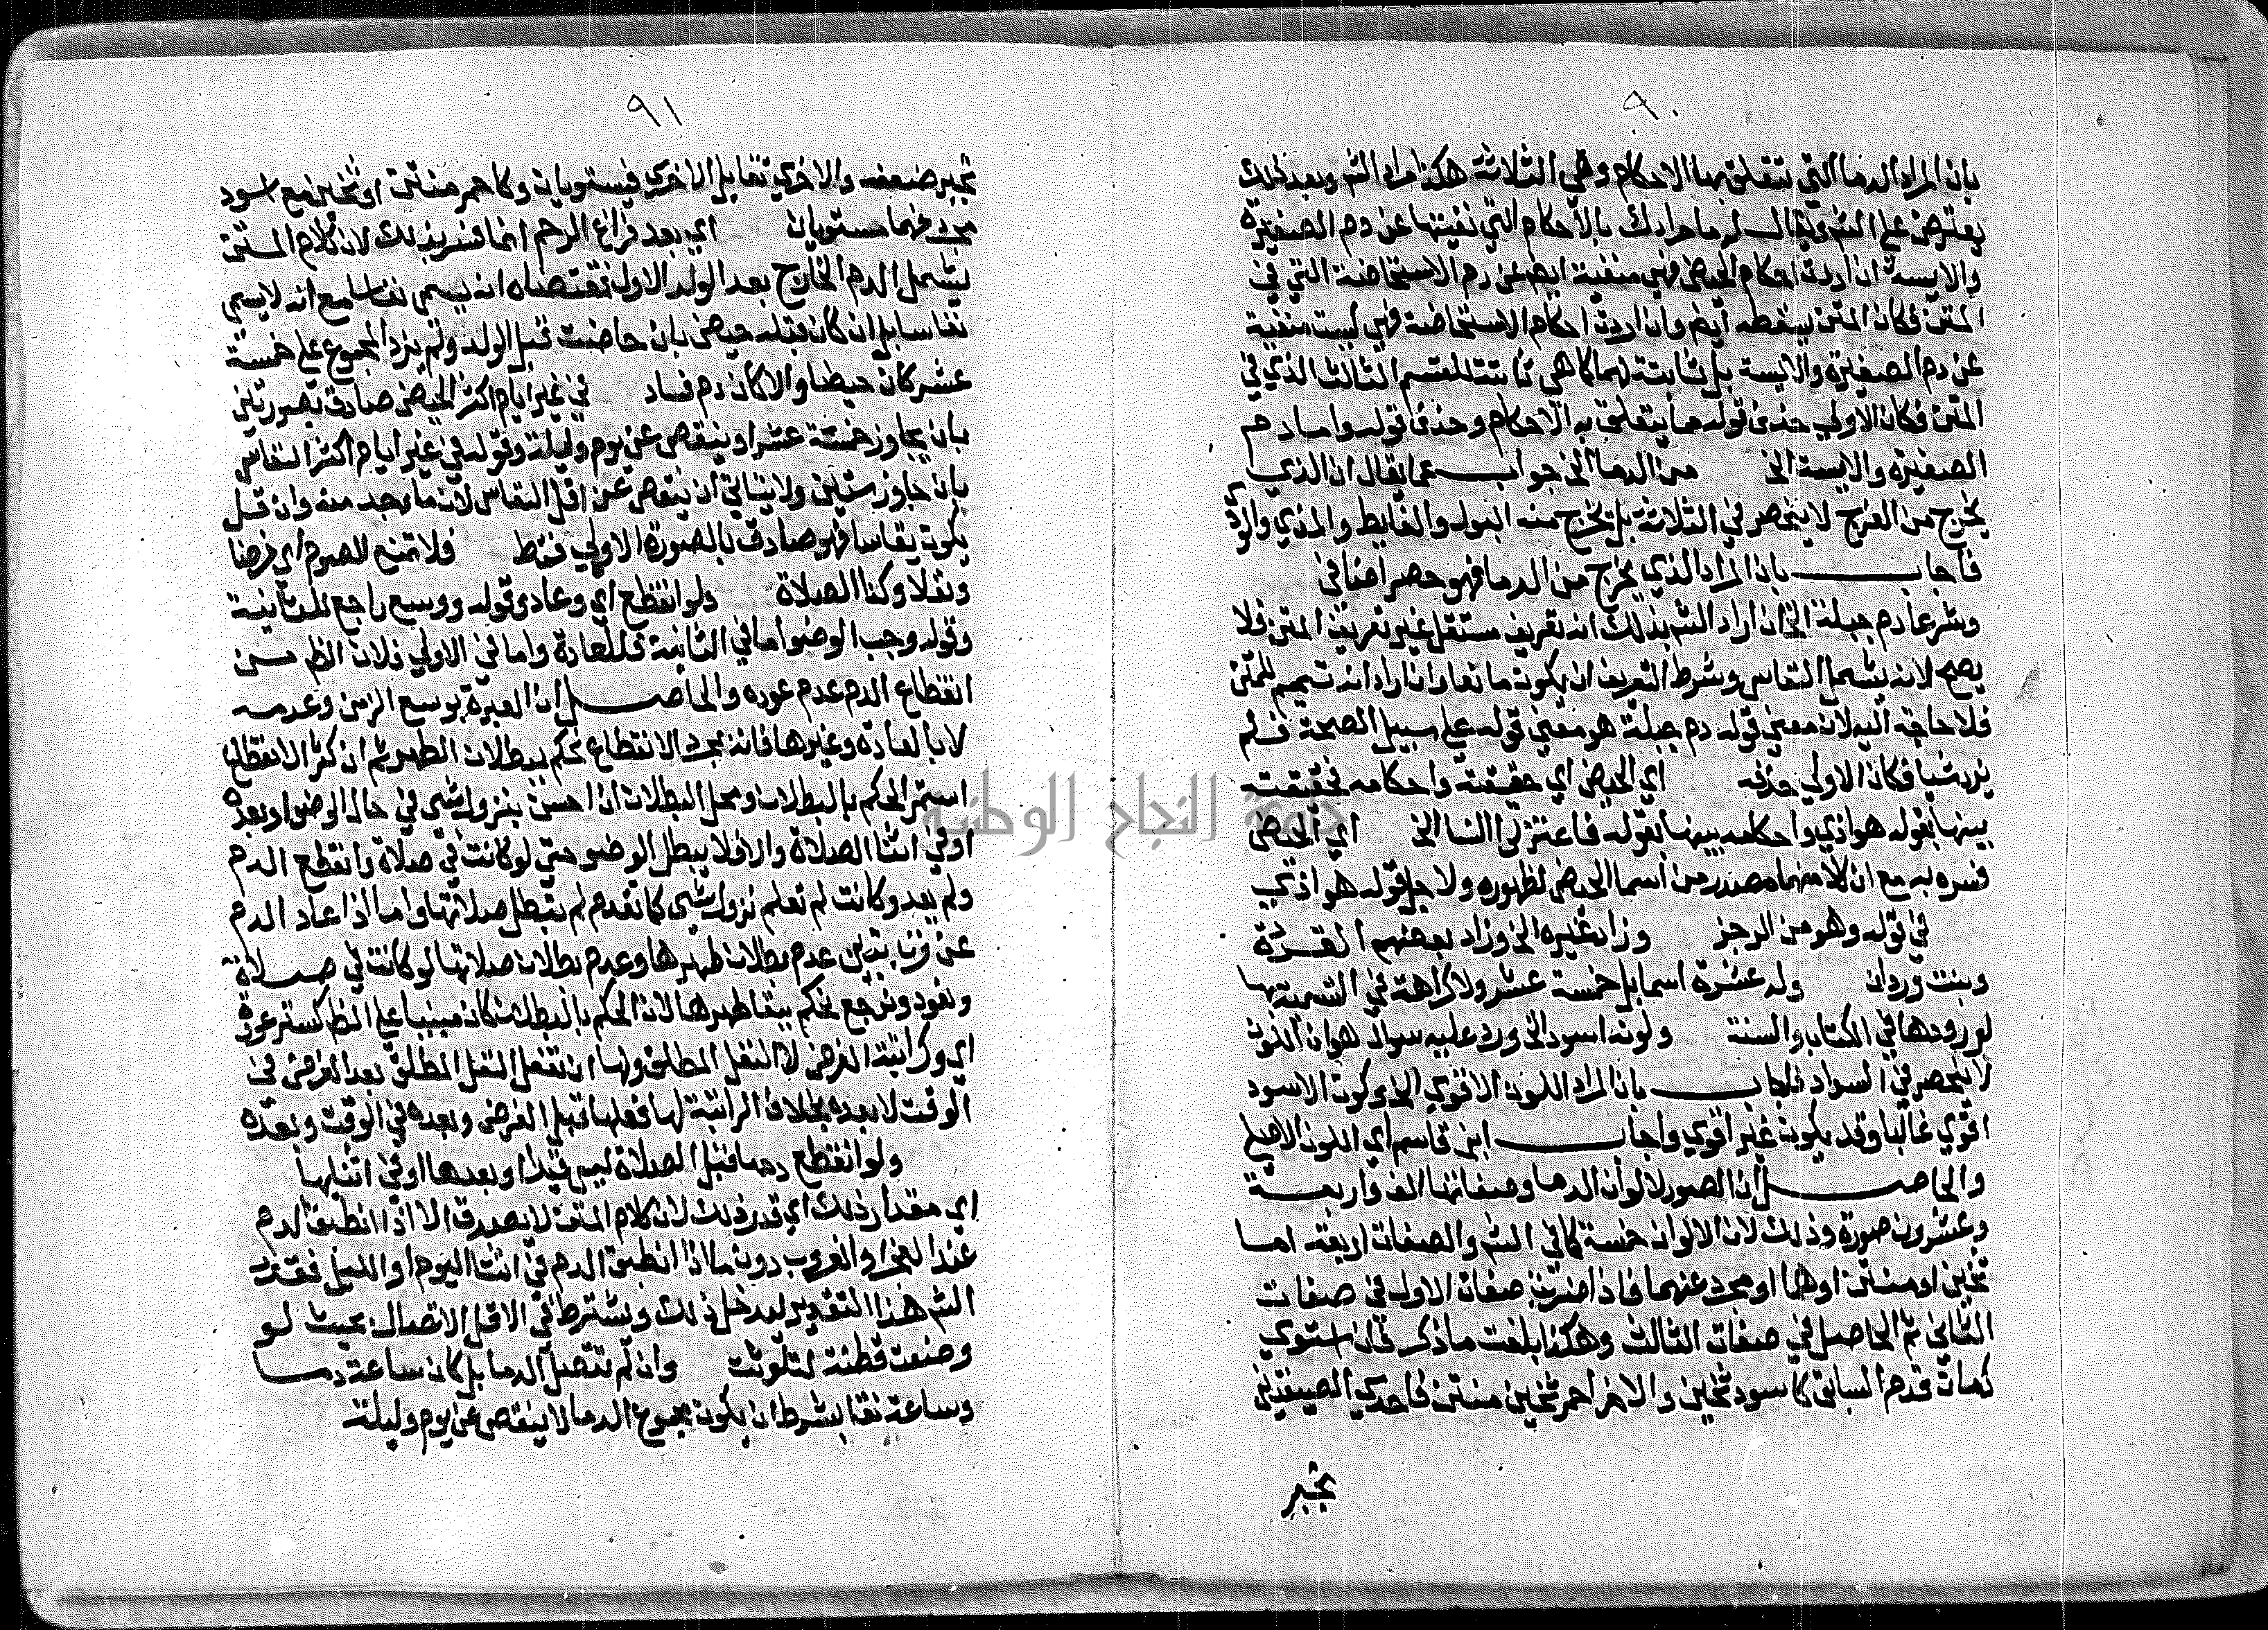 ٩٠
بان المراد الدما التي يتعلق بها الاحكام وهي الثلاثة هكذا مراد الشم وبعد ذلك
يعترض على الشم ويقال له ما مرادك بالاحكام التي نفيتها عن دم الصغيرة
والايسة ان اردت احكام الحيض فهي منفية ايض عن دم الاستحاضة التي في
المتن فكان المتن يسقطه ايض وان اردت احكام الاستحاضة فهي ليست منفية
عن دم الصغيرة والايسة بل ثابتة لهما كما هي ثابتة للقسم الثالث الذي في
المتن فكان الاولي حذف قوله مما يتعلق به الاحكام وحذف قوله واما دم
الصغيرة والايسة الخ من الدما الخ جواب عما يقال ان الذي
يخرج من الفرج لا ينحصر في الثلاثة بل يخرج منه البول والغايط والمذي والودي
فاجاب بان المراد الذي يخرج من الدما فهو حصر اضافي
وشرعا دم جبلة الخ ان اراد الشم بذلك انه تعريف مستقل غير تعريف المتن فلا
يصح لانه يشمل النفاس وشرط التعريف ان يكون مانعا وان اراد انه تتميم للمتن
فلا حاجة اليه لان معني قوله دم جبلة هو معني قوله على سبيل الصحة فلم
يزد شيا فكان الاولي حذفه اي الحيض اي حقيقته واحكامه فحقيقته
بينها بقوله هو اذي واحكامه بينها بقوله فاعتزلوا النسا الخ اي الحيض
فسره به مع ان كلا منهما مصدر من اسما الحيض لظهوره ولاجل قوله هو اذي
في قوله وهو من الرجز وزاد غيره الخ وزاد بعضهم القردة
وبنت وردان وله عشرة اسما بل خمسة عشر ولا كراهة في التسمية بها
لورودها في الكتاب والسنة ولونه اسود الخ ورد عليه سوال هو ان اللون
لا ينحصر في السواد فاجاب بان المراد اللون الاقوي الخ وكون الاسود
اقوي غالبا وقد يكون غير اقوي واجاب ابن قاسم اي اللون الاصلي
والحاصل ان الصور لالوان الدما وصفاتها الف واربعة
وعشرون صورة وذلك لان الالوان خمسة كما في الشم والصفات اربعة اما
ثخين او منتن او هما او مجرد عنهما فاذا ضربت صفات الاول في صفات
الثاني ثم الحاصل في صفات الثالث وهكذا بلغت ما ذكر فان استوي
دمان قدم السابق كاسود ثخين والاخر احمر ثخين منتن فاحدي الصفتين
تجبر
٩١
تجبر ضعفه والاخري تقابل الاخري فيستويان وكاحمر منتن او ثخين مع اسود
مجرد فهما مستويان اي بعد فراغ الرحم انما فسر بذلك لان كلام المتن
يشمل الدم الخارج بعد الولد الاول فمقتضاه انه يسمي نفاسا مع انه لا يسمي
نفاسا بل ان كان قبله حيض بان حاضت قبل الولد ولم يزد المجموع على خمسة
عشر كان حيضا والا كان دم فساد في غير ايام اكثر الحيض صادق بصورتين
بان يجاوز خمسة عشر او ينقص عن يوم وليلة وقوله في غير ايام اكثر النفاس
بان جاوز ستين ولا يتاتي ان ينقص عن اقل النفاس لان ما وجد منه وان قل
يكون نفاسا فهو صادق بالصورة الاولي فقط فلا تمنع للصوم اي فرضا
ونفلا وكذا الصلاة ولو انقطع اي وعاد وقوله ووسع راجع للثانية
وقوله وجب الوضو اما في الثانية فللعادة واما في الاولي فلان الظم من
انقطاع الدم عدم عوده والحاصل ان العبرة بوسع الزمن وعدمه
لا بالعادة وغيرها فانه بمجرد الانقطاع يحكم ببطلان الطهر ثم ان كثر الانقطاع
استمر الحكم بالبطلان ومحل البطلان ان احسن بنزول شي في حال الوضو او بعده
او في اثنا الصلاة والا فلا يبطل الوضو حتي لو كانت في صلاة وانقطع الدم
ولم يعد وكانت لم تعلم نزول شي كما تقدم لم تبطل صلاتها واما اذا عاد الدم
عن قرب تبين عدم بطلان طهرها وعدم بطلان صلاتها لو كانت في صلاة
وتعود وترجع يحكم ببقا طهرها لان الحكم بالبطلان كان مبنيا على الظم كستر عورة
اي وكراتبة الفرض لا النفل المطلق ولها ان تفعل النفل المطلق بعد الفرض في
الوقت لا بعده بخلاف الراتبة لها فعلها قبل الفرض وبعده في الوقت وبعده
ولو انقطع دمها قبل الصلاة ليس قيدا وبعدها او في اثنايها
اي مقدار ذلك اي قدر ذلك لان كلام المتن لا يصدق الا اذا انطبق الدم
عند الفجر والغروب دون ما اذا انطبق الدم في اثنا اليوم او الليل فقدر
الشم هذا التقدير ليدخل ذلك ويشترط في الاقل الاتصال بحيث لو
وضعت قطنة لتلوثت وان لم تتصل الدما بل كان ساعة دما
وساعة نقا بشرط ان يكون مجموع الدما لا ينقص عن يوم وليلة
جامعة النجاح الوطنية